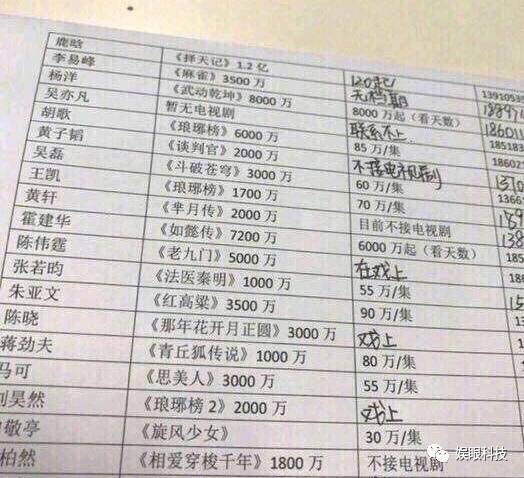 鹿晗 《择天记》1.2 亿 120起 139105
李易峰 《麻雀》3500 万 无档期
杨洋 《武动乾坤》8000 万 8000 万起（看天数）
吴亦凡 暂无电视剧 联系不上 185183
胡歌 《琅琊榜》6000 万 85 万/集 18602
黄子韬 《谈判官》2000 万 不接电视剧
吴磊 《斗破苍穹》3000 万 60 万/集 1366
王凯 《琅琊榜》1700 万 70 万/集
黄轩 《芈月传》2000 万 目前不接电视剧
霍建华 《如懿传》7200 万 6000 万起（看天数） 185
陈伟霆 《老九门》5000 万 在戏上
张若昀 《法医秦明》1000 万 55 万/集
朱亚文 《红高粱》3500 万 90 万/集
陈晓 《那年花开月正圆》3000 万 戏上
蒋劲夫 《青丘狐传说》1000 万 80 万/集
马可 《思美人》3000 万 55 万/集
刘昊然 《琅琊榜 2》2000 万 戏上
敬亭 《旋风少女》 30 万/集
柏然 《相爱穿梭千年》1800 万 不接电视剧
娱眼科技